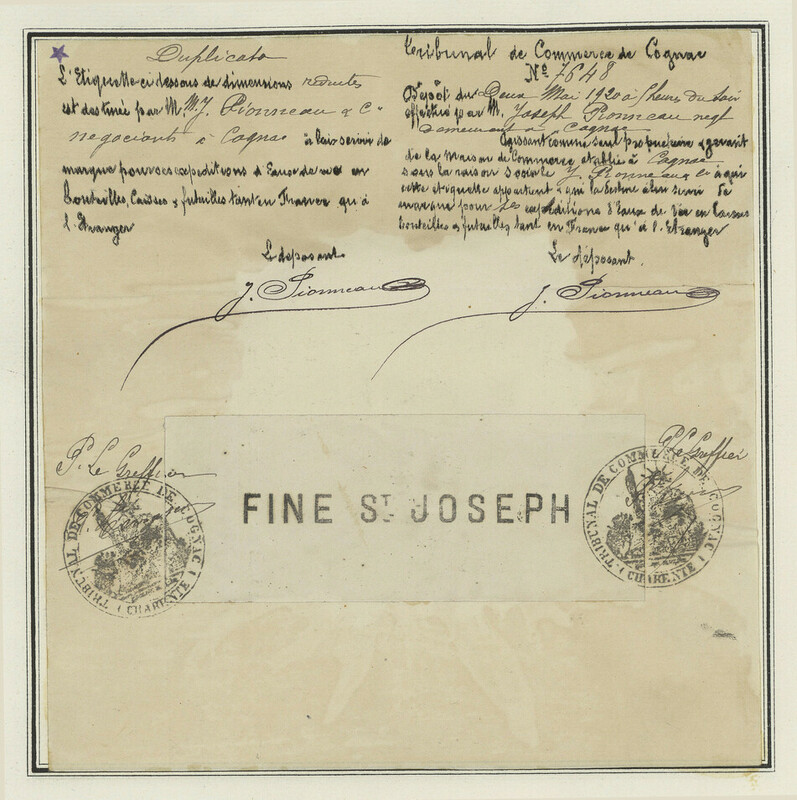 Duplicata
L'Etiquette ci dessous de dimensions réduites
est destinée par M. M. J. Pionneau & Cie
négociants à Cognac à lui servir de
marque pour ses expéditions d'Eaux de vie en
bouteilles, Caisses & futailles tant en France qu'à
l'Etranger
Le déposant
J. Pionneau
Tribunal de Commerce de Cognac
No 7648
Dépôt du Deux Mai 1920 à heures du soir
effectué par M. Joseph Pionneau negt
demeurant à Cognac
agissant comme seul propriétaire & gérant
de la Maison de Commerce établie à Cognac
sous la raison sociale J. Pionneau & Cie à qui
cette étiquette appartient & qui la destine à lui servir de
marque pour ses expéditions d'Eaux de Vie en Caisses
bouteilles & futailles tant en France qu'à l'Etranger
Le déposant.
J. Pionneau
P. Le Greffier
P. Le Greffier
TRIBUNAL DE COMMERCE DE COGNAC
(CHARENTE)
FINE ST JOSEPH
TRIBUNAL DE COMMERCE DE COGNAC
(CHARENTE)